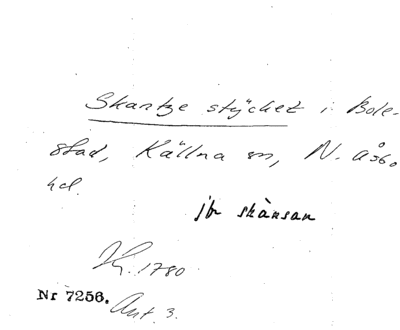 Skantze stycket i Bole-
stad, Källna sn, N. Åsbo
hd.
jfr skånsan
Kr. 1780
Nr 7256. Ant. 3.